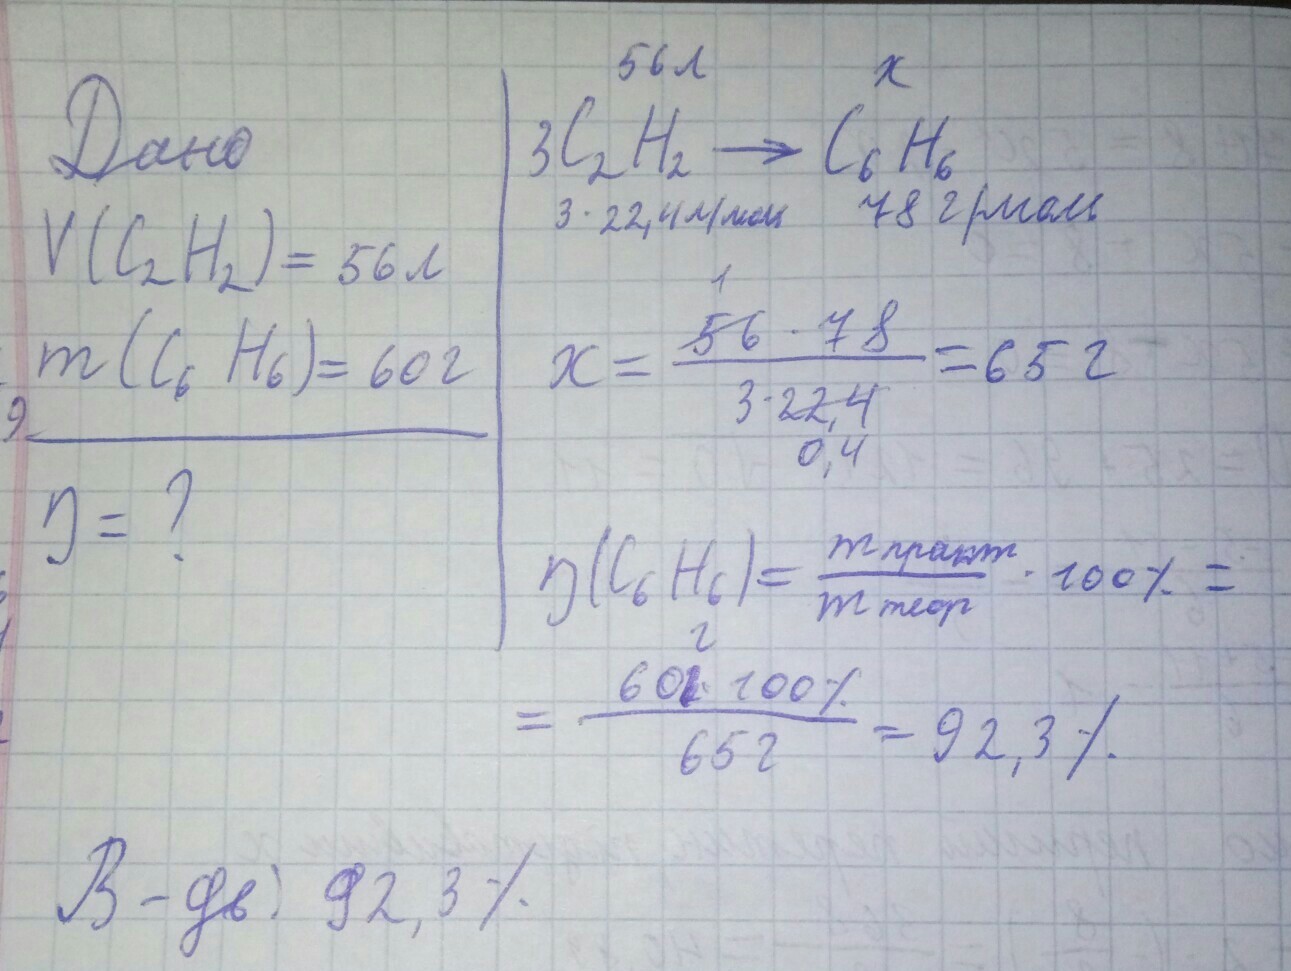 Дано
V(C₂H₂) = 56л
m(C₆H₆) = 60г
η = ?
56л x
3C₂H₂ → C₆H₆
3·22,4л/моль 78г/моль
1
x = 56·78 / 3·22,4 = 65г
0,4
η(C₆H₆) = m практ / m теор · 100% =
= 60г · 100% / 65г = 92,3%
В-дь: 92,3%